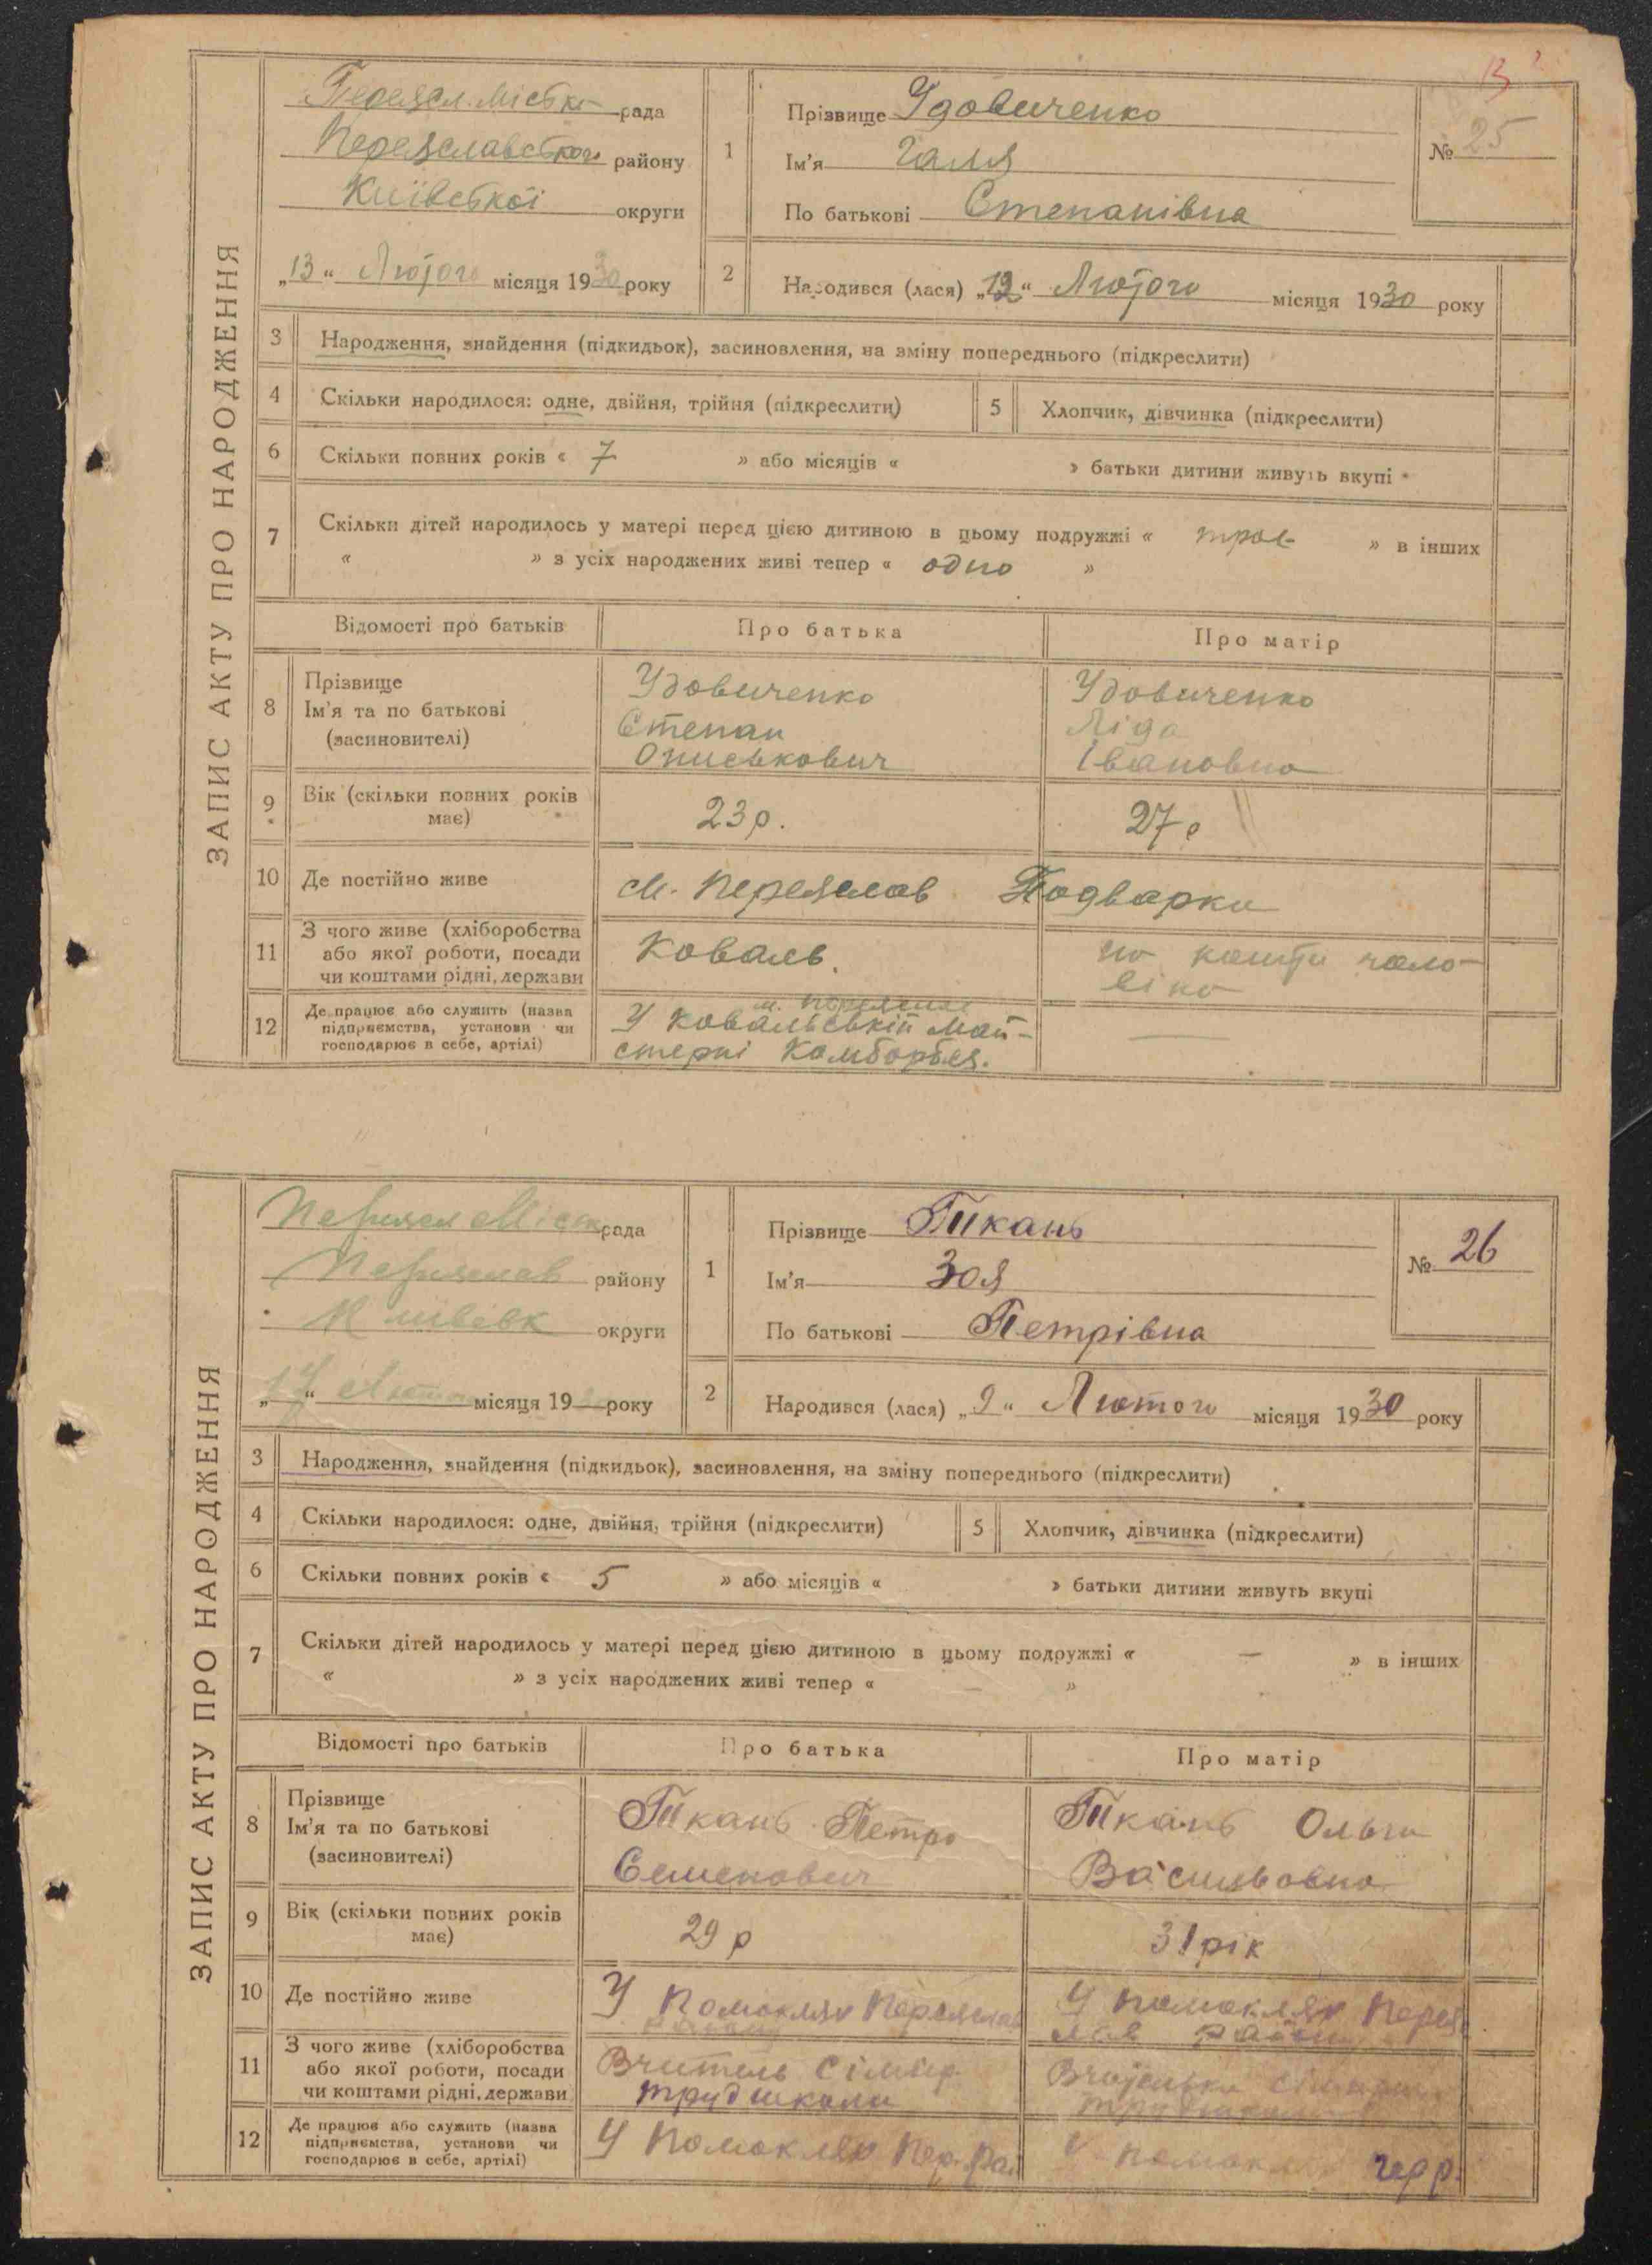 ЗАПИС АКТУ ПРО НАРОДЖЕННЯ
Переясл. міська рада
Переяславського району
Київської округи
„13“ Лютого місяця 1930 року
1
Прізвище Удовиченко
Ім'я Галя
По батькові Степанівна
№ 25
2
Народився (лася) „12“ Лютого місяця 1930 року
3 Народження, знайдення (підкидьок), засиновлення, на зміну попереднього (підкреслити)
4 Скільки народилося: одне, двійня, трійня (підкреслити) 5 Хлопчик, дівчинка (підкреслити)
6 Скільки повних років « 7 » або місяців « » батьки дитини живуть вкупі
7 Скільки дітей народилось у матері перед цією дитиною в цьому подружжі « троє » в інших
« » з усіх народжених живі тепер « одно »
Відомості про батьків Про батька Про матір
8 Прізвище
Ім'я та по батькові
(засиновителі)
Удовиченко
Степан
Ониськович
Удовиченко
Ліда
Івановна
9 Вік (скільки повних років має)
23 р.
27 р
10 Де постійно живе
м. Переяслав Подварки
11 З чого живе (хліборобства
або якої роботи, посади
чи коштами рідні, держави
Коваль.
на кошти чоло-
віка
12 Де працює або служить (назва
підприємства, установи чи
господарює в себе, артілі)
м. Переяслав
У ковальській май-
стерні Комборбез.
—
ЗАПИС АКТУ ПРО НАРОДЖЕННЯ
Переясл Міськ рада
Переяслав району
округи
„14“ Лютого місяця 19 року
1
Прізвище Ткань
Ім'я Зоя
По батькові Петрівна
№ 26
2
Народився (лася) „9“ Лютого місяця 1930 року
3 Народження, знайдення (підкидьок), засиновлення, на зміну попереднього (підкреслити)
4 Скільки народилося: одне, двійня, трійня (підкреслити) 5 Хлопчик, дівчинка (підкреслити)
6 Скільки повних років « 5 » або місяців « » батьки дитини живуть вкупі
7 Скільки дітей народилось у матері перед цією дитиною в цьому подружжі « — » в інших
« » з усіх народжених живі тепер « — »
Відомості про батьків Про батька Про матір
8 Прізвище
Ім'я та по батькові
(засиновителі)
Ткань Петро
Семенович
Ткань Ольга
Васильовна
9 Вік (скільки повних років має)
29 р
31 рік
10 Де постійно живе
У Помоклях Переяслав
району
У Помоклях Переяс
лав район
11 З чого живе (хліборобства
або якої роботи, посади
чи коштами рідні, держави
Вчитель семир.
трудшколи
Вчителька
трудшколи
12 Де працює або служить (назва
підприємства, установи чи
господарює в себе, артілі)
У Помоклях Пер. Рай
У Помоклях